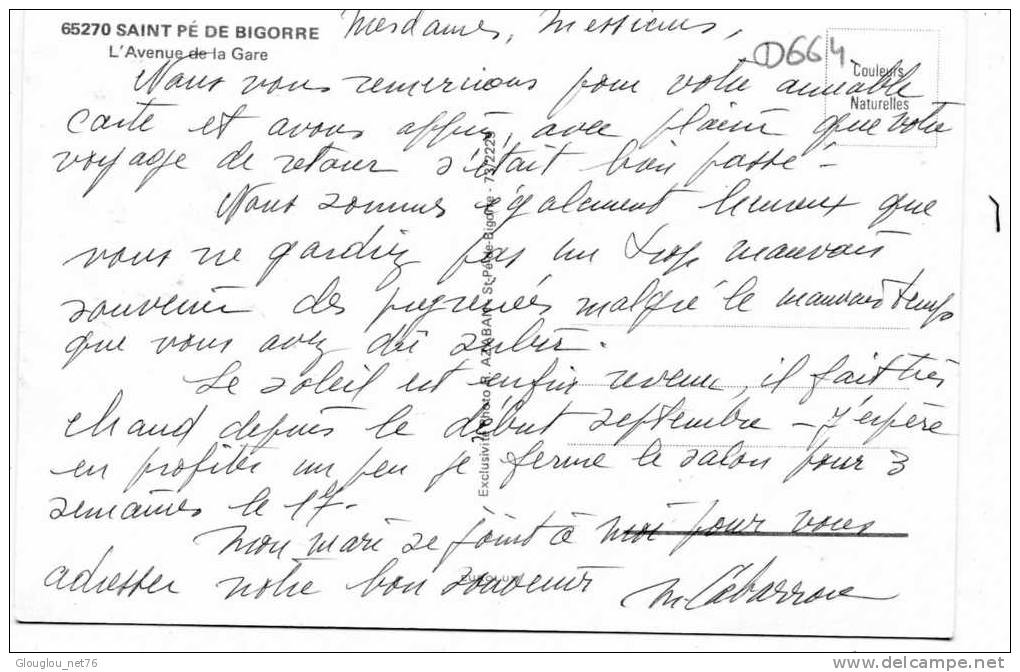 65270 SAINT PÉ DE BIGORRE
L'Avenue de la Gare
Mesdames, Messieurs,
D664
Couleurs
Naturelles
Nous vous remercions pour votre aimable
carte et avons appris, avec plaisir que votre
voyage de retour s'était bien passé -
Nous sommes également heureux que
vous ne gardiez pas un trop mauvais
souvenir des pyrénées malgré le mauvais temps
que vous avez dû subir.
Le soleil est enfin revenu, il fait très
chaud depuis le début septembre - J'espère
en profiter un peu je ferme le salon pour 3
semaines le 17.
Mon mari se joint à moi pour vous
adresser notre bon souvenir
Exclusivité photo R. - St-Pé-de-Bigorre - 7372229
Glouglou_net76
www.delcampe.net